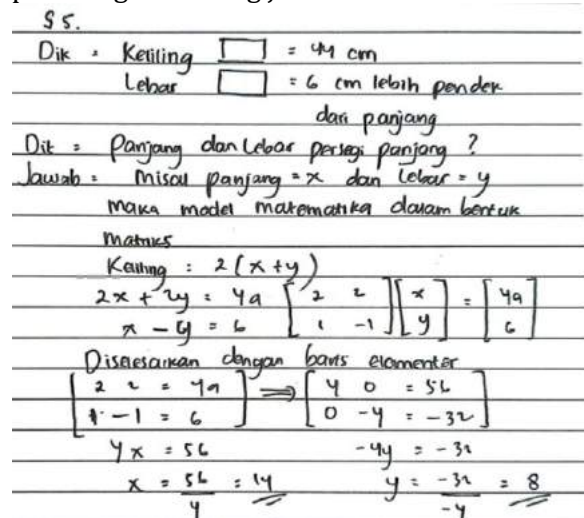 S 5.
Dik : Keliling □ = 44 cm
Lebar □ = 6 cm lebih pendek
dari panjang
Dit : Panjang dan Lebar persegi panjang ?
Jawab : Misal panjang = x dan lebar = y
maka model matematika dalam bentuk
matriks
Keliling : 2 (x + y)
2x + 2y = 44 [2 2; 1 -1] [x; y] = [44; 6]
x - y = 6
Diselesaikan dengan baris elementer
[2 2 = 44; 1 -1 = 6] ⇒ [4 0 = 56; 0 -4 = -32]
4x = 56 -4y = -32
x = 56/4 = 14 y = -32/-4 = 8